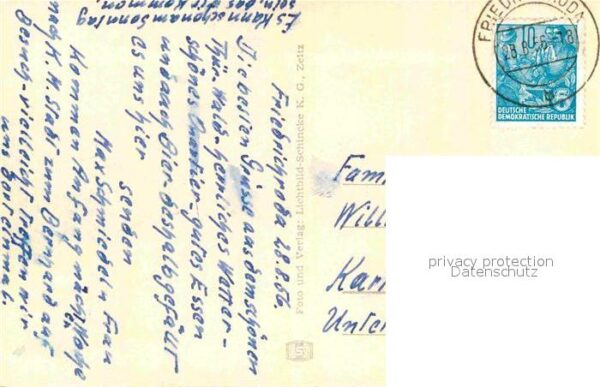 Friedrichroda 28.8.56.
Die besten Grüsse aus dem schönen
Thür. Wald - herrliches Wetter -
schönes Quartier - gutes Essen
und auch Bier - deshalb gefällt
es uns hier
senden
Max Schmieder u. Frau
Kommen Anfang nächst. Woche
nach K.M. Stadt zum Bernhard auf
Besuch - vielleicht treffen wir
uns dort einmal.
Es kann schon am Sonntag
sein, das wir kommen.
Foto und Verlag: Lichtbild-Schincke K. G., Zeitz
FRIED
28.8.56
10
DEUTSCHE
DEMOKRATISCHE REPUBLIK
Fam
Will
Kar
Unter
privacy protection
Datenschutz